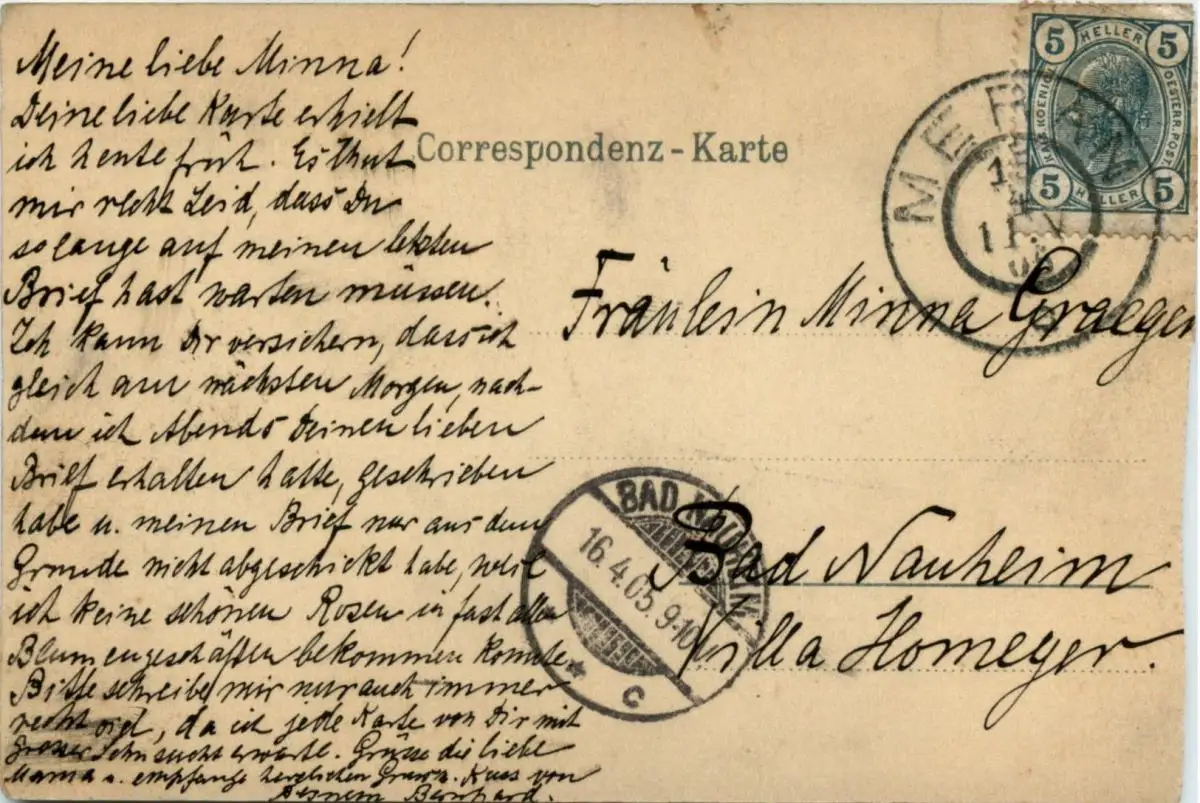 Meine liebe Minna!
Deine liebe Karte erhielt
ich heute früh. Es thut
mir recht Leid, dass Du
solange auf meinen letzten
Brief hast warten müssen.
Ich kann Dir versichern, dass ich
gleich am nächsten Morgen, nach-
dem ich Abends Deinen lieben
Brief erhalten hatte, geschrieben
habe u. meinen Brief nur aus dem
Grunde nicht abgeschickt habe, weil
ich keine schönen Rosen in fast allen
Blumengeschäften bekommen konnte.
Bitte schreibe mir nur auch immer
recht viel, da ich jede Karte von Dir mit
grosser Sehnsucht erwarte. Grüsse die liebe
Mama u. empfange herzlichen Gruss u. Kuss von
Deinem Bernhard.
Correspondenz-Karte
5 HELLER 5
KAIS. KOENIGL. OESTERR. POST
5 HELLER 5
MERAN
Fräulein Minna Graeger
Bad Nauheim
Villa Homeyer.
BAD NAUHEIM
16.4.05. 9-10
* C